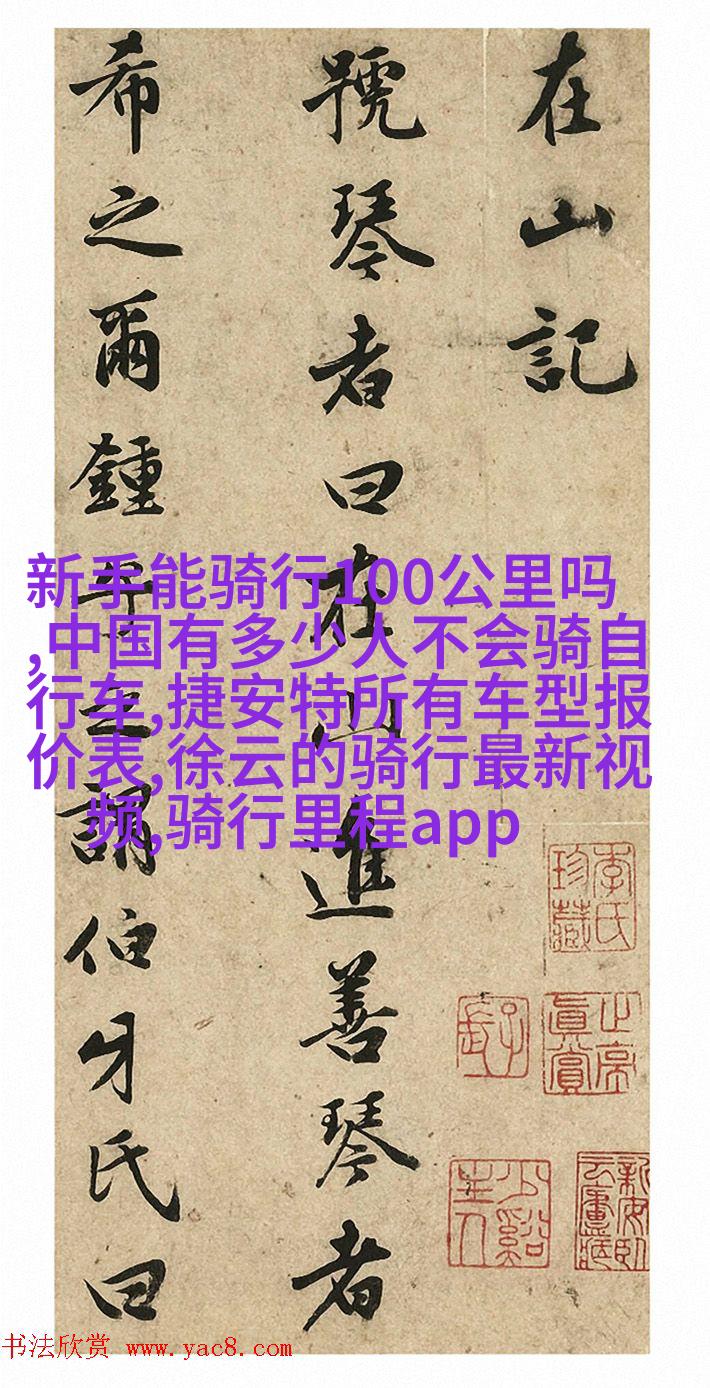 在山記
號琴者曰在山進善琴者
希之爾鍾
謂伯牙氏曰
新手能骑行100公里吗
,中国有多少人不会骑自
行车,捷安特所有车型报
价表,徐云的骑行最新视
频,骑行里程app
李氏珍藏
真賞
少谿主人
新安
书法欣赏 www.yac8.com